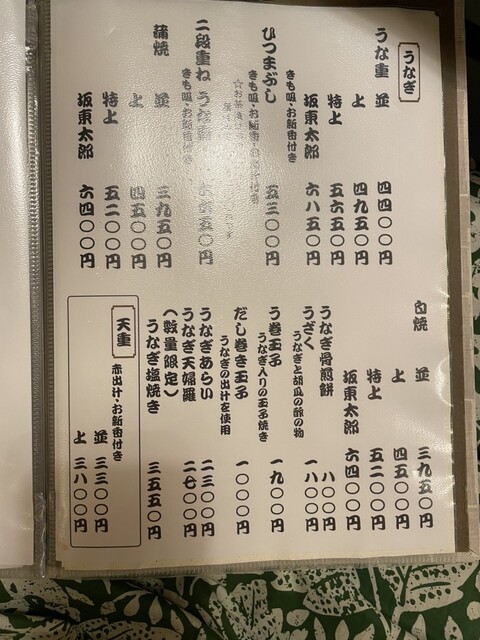 うなぎ
うな重 並 四四〇〇円
上 四九五〇円
特上 五六五〇円
坂東太郎 六八五〇円
きも吸・お新香付き
ひつまぶし 五三〇〇円
きも吸・お新香・お
付き
二段重ね うな重 六六五〇円
きも吸・お新香付き
蒲焼 並 三九五〇円
上 四五〇〇円
特上 五二〇〇円
坂東太郎 六四〇〇円
白焼 並 三九五〇円
上 四五〇〇円
特上 五二〇〇円
坂東太郎 六四〇〇円
うなぎ骨煎餅 八〇〇円
うざく 一八〇〇円
うなぎと胡瓜の酢の物
う巻玉子 一九〇〇円
うなぎ入りの玉子焼き
だし巻き玉子 一〇〇〇円
うなぎの出汁を使用
うなぎあらい 二三〇〇円
うなぎ天婦羅 二七〇〇円
(数量限定)
うなぎ塩焼き 三五五〇円
天重
赤出汁・お新香付き
並 三三〇〇円
上 三八〇〇円